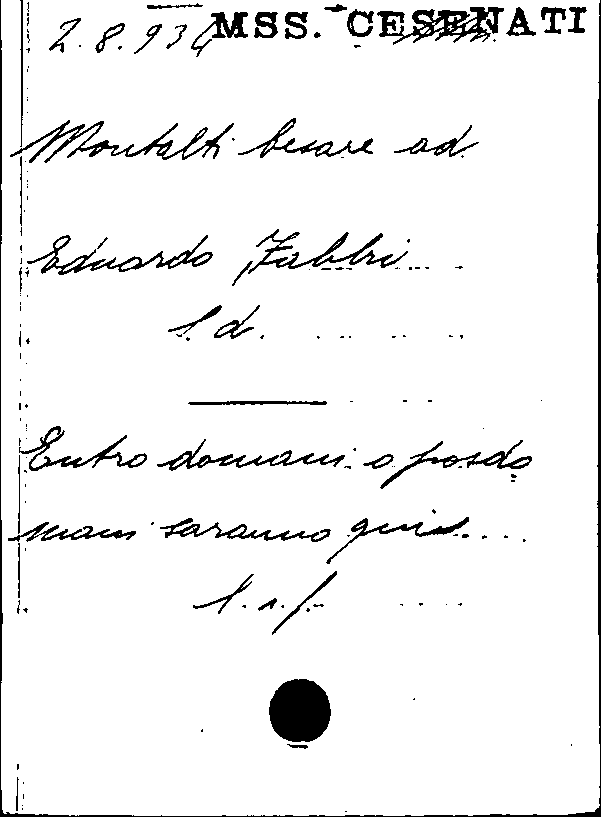 2.8.934 MSS. CESENATI
Montalti Cesare ad
Eduardo Fabbri
s. d.
Entro domani o posdo
mani saranno qui
l. a. f.